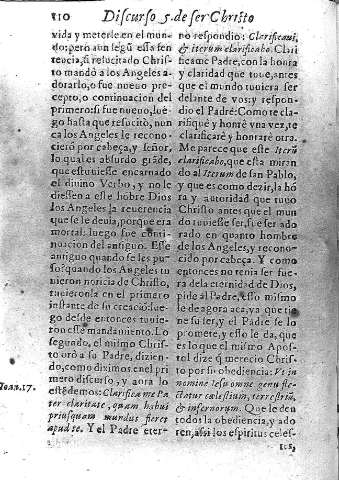 110 Discurso 5. de ser Christo
vida y meterle en el mun-
do: pero aun segũ essa sen
tencia, si resucitado Chris
to mandò a los Angeles a-
dorarlo, o fue nueuo pre-
cepto, o continuacion del
primero: si fue nueuo, lue-
go hasta que resucitò, nun
ca los Angeles le recono-
ciero por cabeça, y señor,
lo qual es absurdo grãde,
que estuuiesse encarnado
el diuino Verbo, y no le
diessen a esse hõbre Dios
los Angeles la reuerencia
que se le deuia, porque era
mortal: luego fue conti-
nuacion del antiguo. Esse
antiguo quando se les pu-
so? quando los Angeles tu
uieron noticia de Christo,
tuuieronla en el primero
instante de su creaciõ: lue-
go desde entonces tuuie-
ron esse mandamiento. Lo
segundo, el mismo Chris-
to orò a su Padre, dizien-
do, como diximos en el pri
mero discurso, y aora lo
Ioan. 17.
estèdemos: Clarifica me Pa
ter claritate, quam habui
priusquam mundus fieret
apud te. Y el Padre eter-
no respondio: Clarificaui,
& iterum clarificabo. Clari
ficame Padre, con la honra
y claridad que tuue, antes
que el mundo tuuiera ser
delante de vos; y respon-
dio el Padre: Como te cla-
rifiquè y honrè vna vez, te
clarificarè y honrarè otra.
Me parece que este Iterũ
clarificabo, que esta miran
do al Iterum de san Pablo,
y que es como dezir, la hõ
ra y autoridad que tuuo
Christo antes que el mun
do tuuiesse ser, fue ser ado
rado en quanto hombre
de los Angeles, y recono-
cido por cabeça. Y como
entonces no tenia ser fue-
ra de la eternidad de Dios,
pide al Padre, Esso mismo
le de agora aca, ya que tie
ne su ser, y el Padre se lo
promete, y esso le da, que
es lo que el mismo Apos-
tol dize q̃ merecio Chris-
to por su obediencia: Vt in
nomine Iesu omne genu fle-
ctatur cœlestium, terrestriũ,
& infernorum. Que le den
todos la obediencia, y ado
ren, assi los espiritus celes-